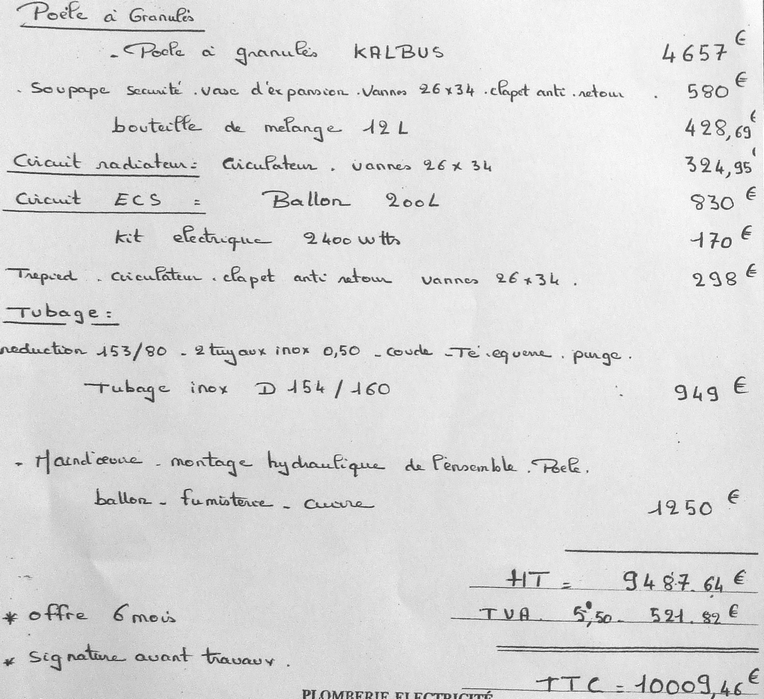 Poêle à Granulés
- Poele à granulés KALBUS 4657 €
. Soupape securité . vase d'expansion . Vannes 26x34 . clapet anti . retour . 580 €
bouteille de melange 12 L 428,69 €
Circuit radiateur : Circulateur . vannes 26 x 34 324,95
Circuit ECS = Ballon 200L 830 €
Kit electrique 2400 wtts 170 €
Trepied . circulateur . clapet anti retour vannes 26x34 . 298 €
Tubage :
reduction 153/80 - 2 tuyaux inox 0,50 - coude - Té . equerre . purge .
Tubage inox D 154 / 160 : 949 €
- Maind'œuvre - montage hydraulique de l'ensemble . Poele .
ballon - fumisterie - cuivre 1250 €
HT = 9487.64 €
* offre 6 mois TVA 5,50 - 521.82 €
* Signature avant travaux .
TTC = 10009,46 €
PLOMBERIE ELECTRICITÉ